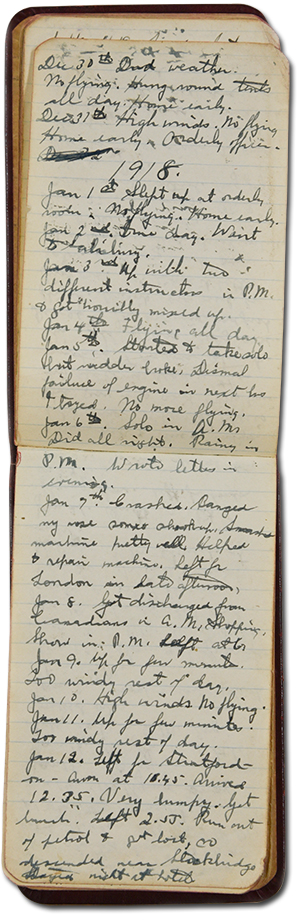 Dec 30th Dud weather.
No flying. Hung round tents
all day. Home early.
Dec 31st High winds. No flying
Home early. Orderly officer.
1918.
Jan 1st Slept up at orderly
room. No flying. Home early.
Jan 2nd day. Went
to Salisbury.
Jan 3rd. Up with two
different instructors in P.M.
& got horribly mixed up.
Jan 4th Flying all day.
Jan 5th. Started to take solo
but rudder broke. Dismal
failure of engine in next bus
I taxed. No more flying.
Jan 6th. Solo in A.M.
Did all right. Rainy in
P.M. Wrote letter in
evening.
Jan 7th Crashed. Banged
my nose some shook up. Smashed
machine pretty well. Helped
to repair machine. Left for
London in late afternoon.
Jan 8. Got discharged from
Canadians in A.M. Shopping.
Show in P.M. Left at 6.
Jan 9. Up for few minutes.
Too windy rest of day.
Jan 10. High winds. No flying.
Jan 11. Up for few minutes.
Too windy rest of day.
Jan 12. Left for Stratford-
on-Avon at 10.45. Arrive
12.35. Very bumpy. Got
lunch. Left 2.55. Run out
of petrol & got lost, so
descended near Stockbridge
Stayed night at hotel